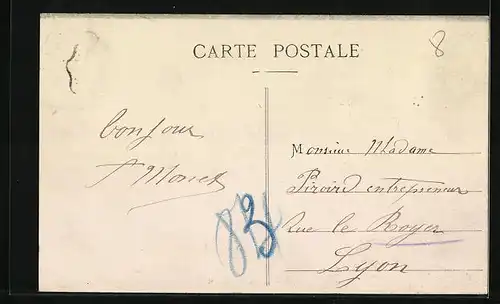 CARTE POSTALE
8
bonjour
Monsieur Madame
Piroird entrepreneur
Rue le Royer
Lyon
83